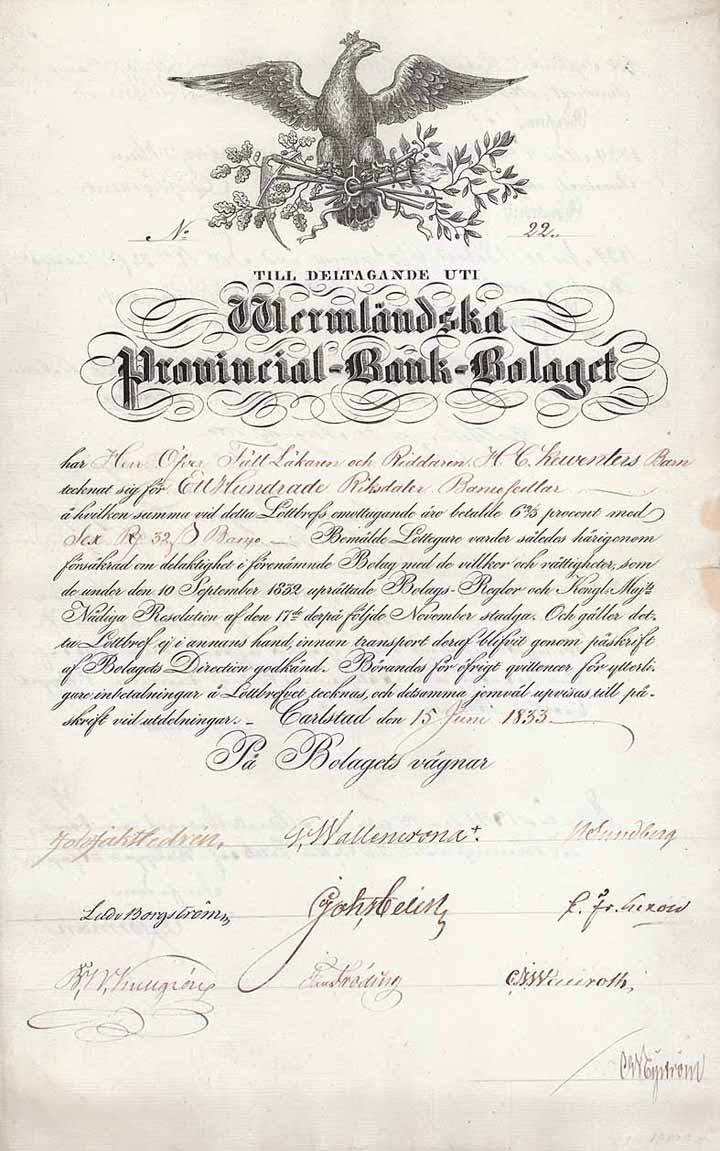 No 22.
TILL DELTAGANDE UTI
Wermländska
Provincial-Bank-Bolaget
har Herr Öfver Fält Läkaren och Riddaren H. C. Kewenters Barn
tecknat sig för Ett Hundrade Riksdaler Bancosedlar
å hvilken summa vid detta Lottbrefs emottagande äro betalde 6⅔ procent med
Sex Rd 32 ß Banco — Bemälde Lottegare varder således härigenom
försäkrad om delaktighet i förenämnde Bolag med de villkor och rättigheter, som
de under den 10 September 1832 upråttade Bolags-Reglor och Kongl. Maj:ts
Nådiga Resolution af den 17de derpå följde November stadga. Och gäller det-
ta Lottbref ej i annans hand, innan transport deraf blifvit genom påskrift
af Bolagets Direction godkänd. Börandes för öfrigt qvittencer för ytterli-
gare inbetalningar å Lottbrefvet tecknas, och detsamma jemväl upvisas till på-
skrift vid utdelningar. – Carlstad den 15 Juni 1833
På Bolagets vägnar
Hedrén G. Wallencrona N. Lundberg
Ludv Borgström
Fröding
Nyström